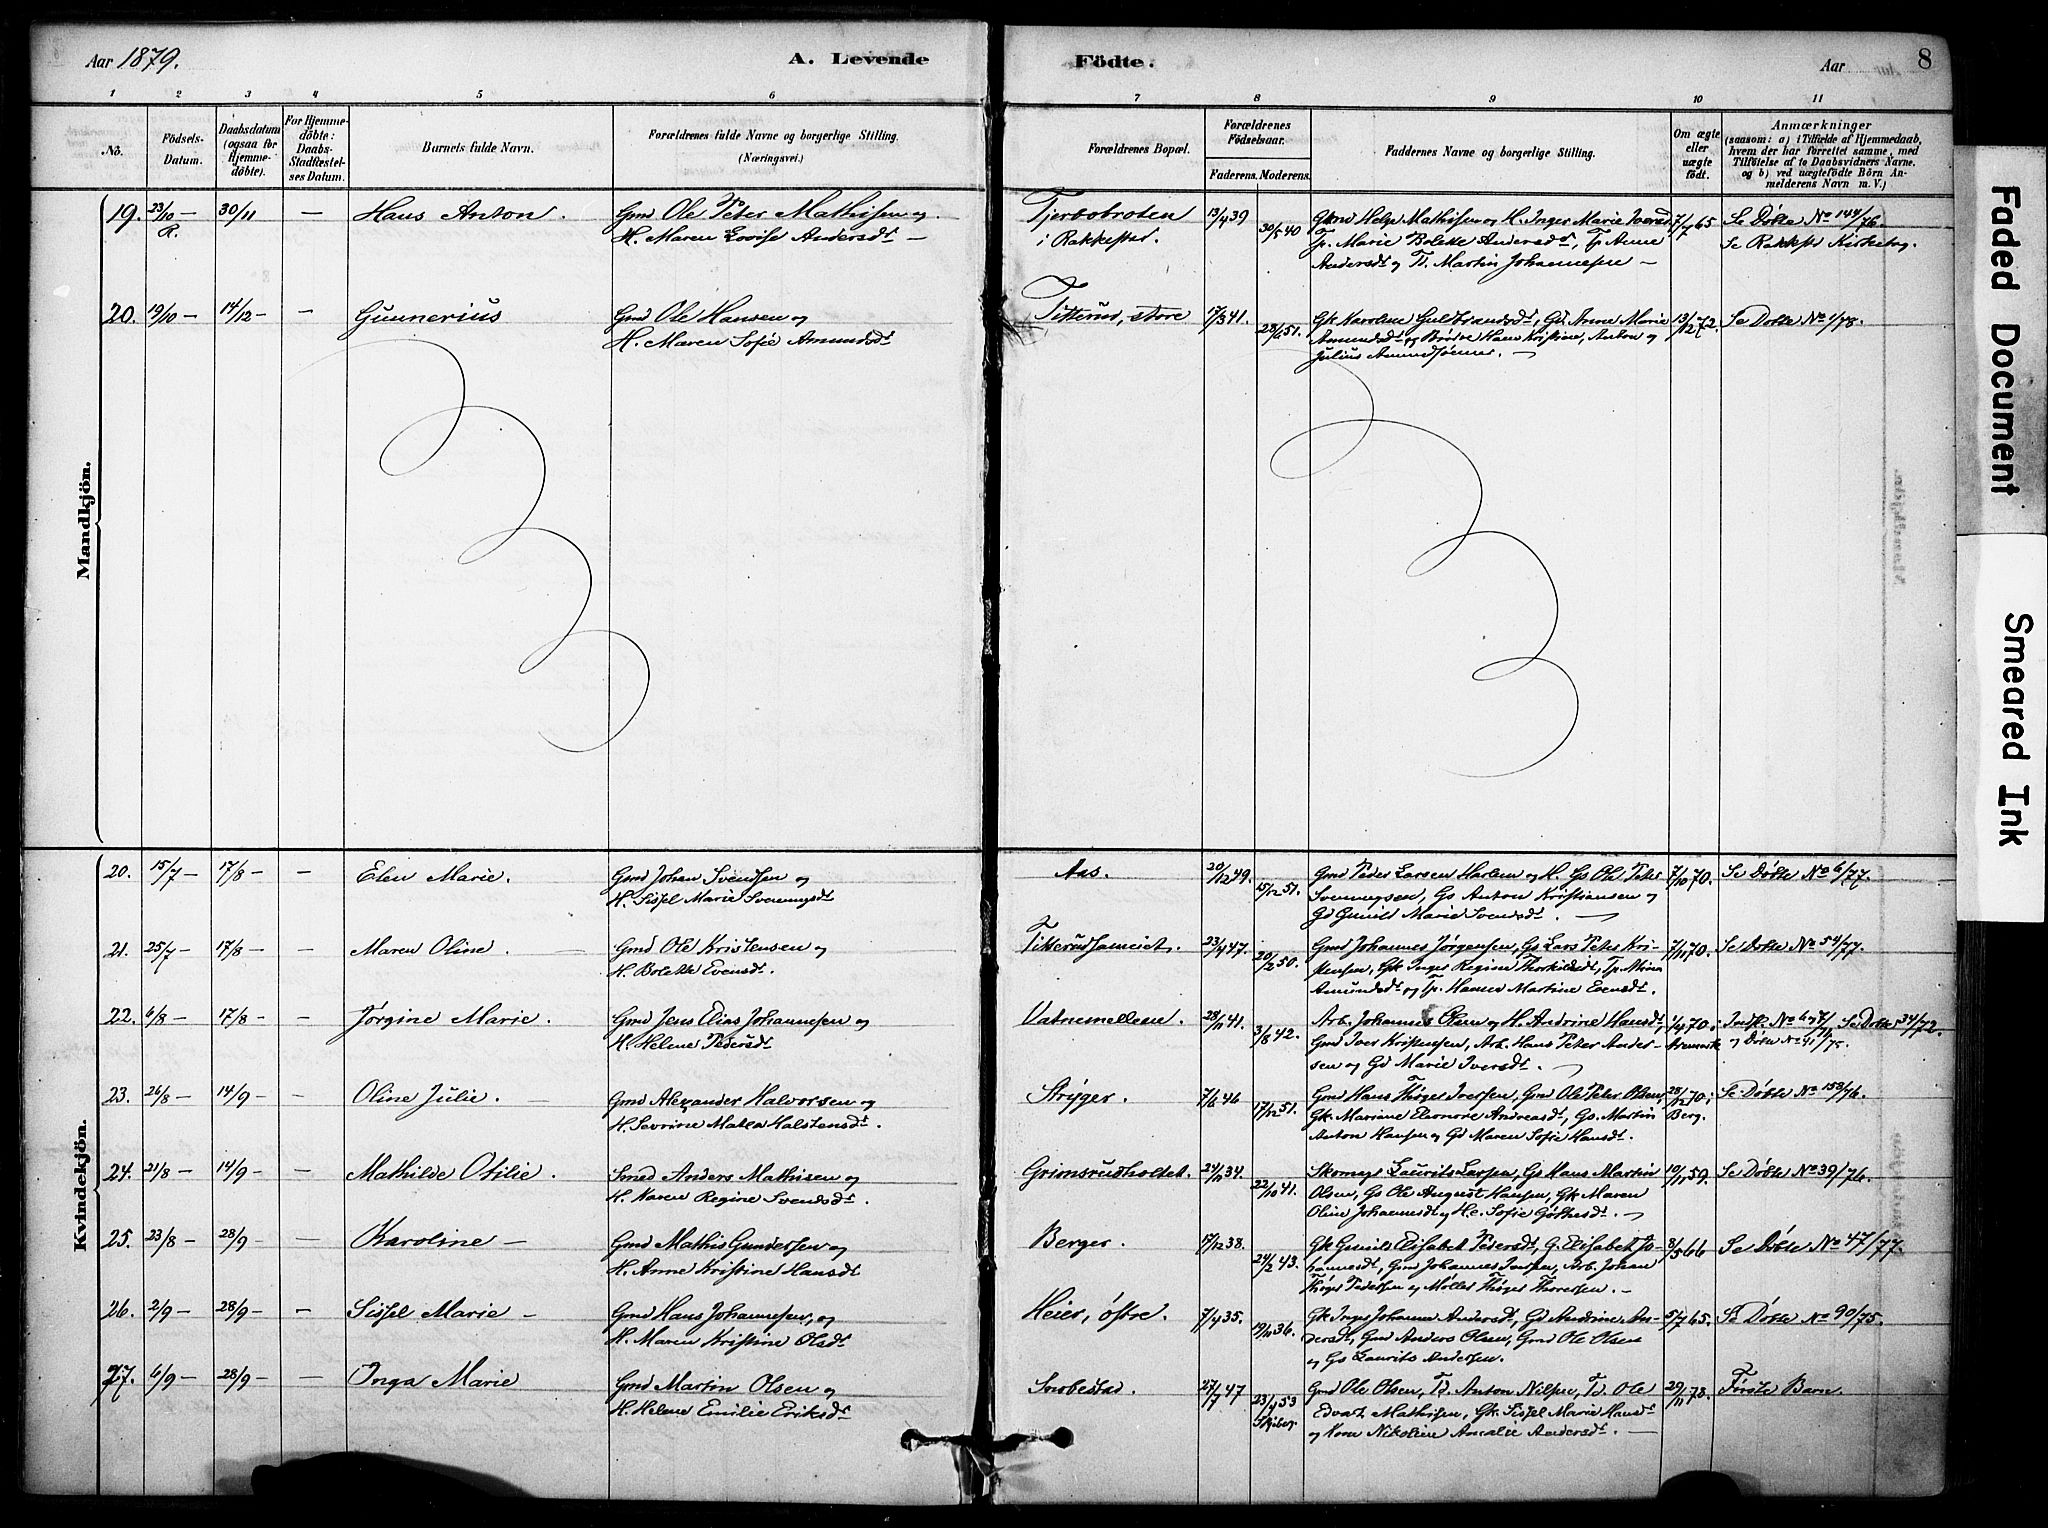 Aar 1879.
A. Levende
Födte.
Aar
8
1 2 3 4 5 6 7 8 9 10 11
No.
Födsels-Datum.
Daabsdatum (ogsaa for Hjemme-döbte).
For Hjemme-döbte: Daabs-Stadfæstel-ses Datum.
Barnets fulde Navn.
Forældrenes fulde Navne og borgerlige Stilling.
(Næringsvei.)
Forældrenes Bopæl.
Forældrenes Födselsaar.
Faderens. Moderens.
Faddernes Navne og borgerlige Stilling.
Om ægte eller uægte födt.
Anmærkninger
(saasom: a) i Tilfælde af Hjemmedaab, hvem der har forrettet samme, med Tilföielse af to Daabsvidners Navne. og b) ved uægtefödte Börn Anmelderens Navn m. V.)
Mandkjön.
19. 23/10 R. 30/11 — Hans Anton. Gmd Ole Peter Mathisen og
H. Maren Lovise Andersdt —
i Rakkestad. 13/4 39 30/5 40
Gkmd Helge Mathisen og H. Inger Marie Iversdt
Tp. Marie Bolette Andersdt, Tp. Anne
Andersdt og Tt. Martin Johannesen —
7/7 65 Se Döbte No 144/76.
Se Rakkest Kirkebog.
20. 19/10 — 14/12 — — Gunnerius Gmd Ole Hansen og
H. Maren Sofie Amundsdt
Titterud, store 17/3 41. 28/6 51.
Gk. Karoline Guldbrandsdt, Gd. Anne Marie
Amundsdt og Brødre Hans Kristian, Anton og
Julius Amundsønner. —
13/12 72. Se Döbte No 1/78.
Kvindekjön.
20. 15/7 — 17/8 — — Elen Marie. Gmd Johan Svendsen og
H. Sissel Marie Svenningsdt
Aas. 20/12 49. 15/12 51.
Gmd Peder Larsen Harlem og H. Gs Ole Peter
Svenningsen, Gs Anton Kristiansen og
Gd Gunild Marie Svensdt. —
7/10 70. Se Döbte No 6/77.
21. 25/7 17/8 — — Maren Oline. Gmd Ole Kristensen og
H. Bolette Evensdt.
Titterudsameiet. 23/4 47. 20/2 50.
Gmd Johannes Jørgensen, Gs. Lars Peter Kri-
stensen, Gk. Inger Regine Thorkildsdt, Tp. Mina
Amundsdt og Tp. Hanna Martine Evensdt.
7/11 70. Se Döbte No 54/77.
22. 6/8 — 17/8 — — Jørgine Marie. Gmd Jens Elias Johannesen og
H. Helene Pedersdt
Vatnemellem. 28/11 41. 3/8 42.
Arb. Johannes Olsen og H. Andrine Hansdt,
Gmd Iver Kristensen, Arb. Hans Peter Ander-
sen og Gd Marie Iversdt. —
1/4 70. Aremark
og Döbte No 41/75. Se Döbte 34/72.
23. 26/8 — 14/9 — — Oline Julie. Gmd Alexander Halvorsen og
H. Severine Matea Halstensdt.
Strøger. 7/6 46 17/12 51.
Gmd Hans Thøger Iversen, Gmd Ole Peter Olsen,
Gk. Mariane Eleonore Andreasdt, Gs. Martin
Anton Hansen og Gd Maren Sofie Hansdt.
28/12 70. Berg. Se Döbte No 158/76.
24. 21/8 — 14/9 — — Mathilde Otilie. Smed Anders Mathisen og
H. Karen Regine Svendsdt.
Grimsrudholtet. 24/11 34. 22/10 41.
Skomag. Laurits Larsen, Gs Hans Martin
Olsen, Gs Ole August Hansen, Gk. Maren
Oline Johannesdt og He. Sofie Göthesdt. —
10/11 59. Se Döbte No 39/76.
25. 23/8 — 28/9 — — Karoline — Gmd Mathis Gundersen og
H. Anne Kristine Hansdt
Berger. 17/12 38. 24/2 43.
Gk. Gunild Elisabet Pedersdt, G. Elisabet Jo-
hannesdt, Gmd Johannes Jensen, Arb. Johan
Thøger Pedersen og Møller Thøger Thoresen. —
8/5 66 Se Döbte No 47/77.
26. 2/9 — 28/9 — — Sissel Marie — Gmd Hans Johannesen og
H. Maren Kristine Olsdt
Heier, østre. 7/4 35. 19/11 36.
Gk. Inger Johanne Andersdt, Gd Andrine An-
dersdt, Gmd Anders Olsen, Gmd Ole Olsen
og Gs Laurits Andersen.
5/7 65. Se Döbte No 90/75.
27. 6/9 — 28/9 — — Inga Marie Gmd Martin Olsen og
H. Helene Emilie Eriksdt
27/7 47 23/4 53
Gmd Ole Olsen, Ts. Anton Nilsen, Ts. Ole
Edvart Mathisen, Gk. Sissel Marie Hansdt
og Kone Nikoline Amalie Andersdt. —
29/11 78. Første Barn.
Faded Document
Smeared Ink